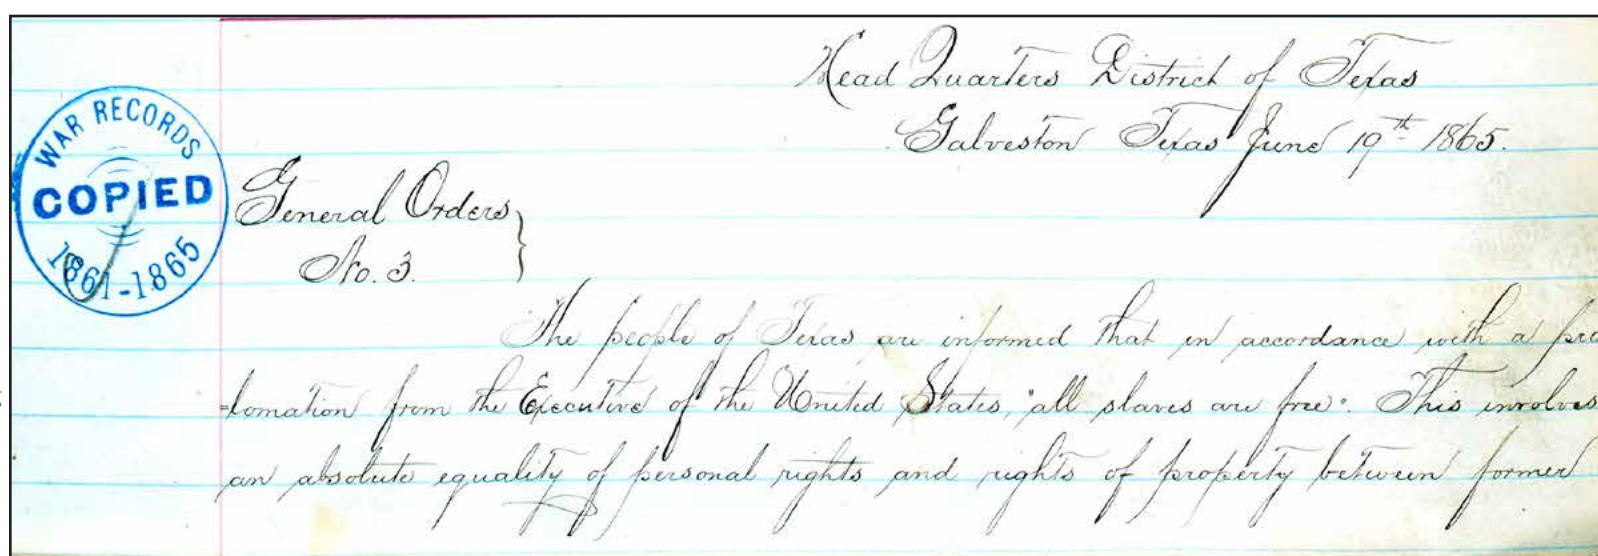 Head Quarters District of Texas
Galveston Texas June 19th 1865.
WAR RECORDS
COPIED
1861-1865
General Orders
No. 3.
The people of Texas are informed that in accordance with a pro
=lamation from the Executive of the United States, "all slaves are free". This involves
an absolute equality of personal rights and rights of property between former